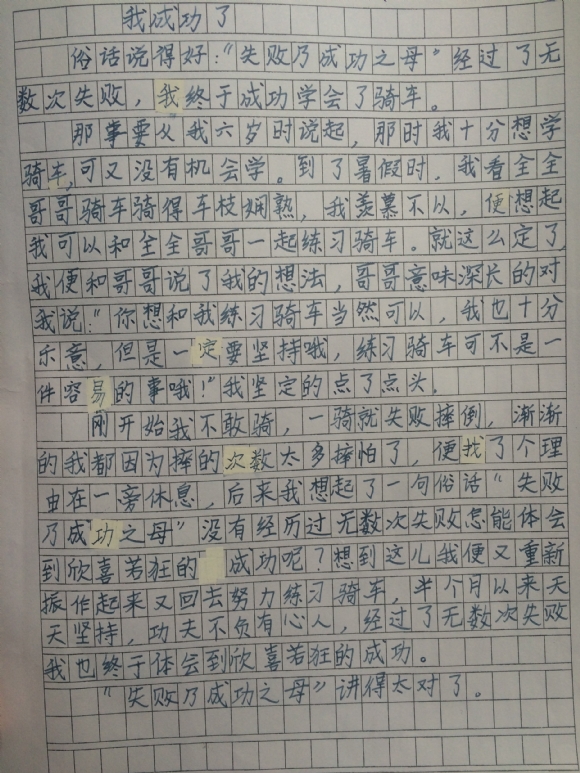 我成功了
俗话说得好:“失败乃成功之母”经过了无
数次失败,我终于成功学会了骑车。
那事要从我六岁时说起,那时我十分想学
骑车,可又没有机会学。到了暑假时,我看全全
哥哥骑车骑得车枝娴熟,我羡慕不以,便想起
我可以和全全哥哥一起练习骑车。就这么定了,
我便和哥哥说了我的想法,哥哥意味深长的对
我说:“你想和我练习骑车当然可以,我也十分
乐意,但是一定要坚持哦,练习骑车可不是一
件容易的事哦!”我坚定的点了点头.
刚开始我不敢骑,一骑就失败摔倒,渐渐
的我都因为摔的次数太多摔怕了,便找了个理
由在一旁休息,后来我想起了一句俗话“失败
乃成功之母”没有经历过无数次失败怎能体会
到欣喜若狂的成功呢?想到这儿我便又重新
振作起来又回去努力练习骑车,半个月以来天
天坚持,功夫不负有心人,经过了无数次失败
我也终于体会到欣喜若狂的成功。
“失败乃成功之母”讲得太对了。